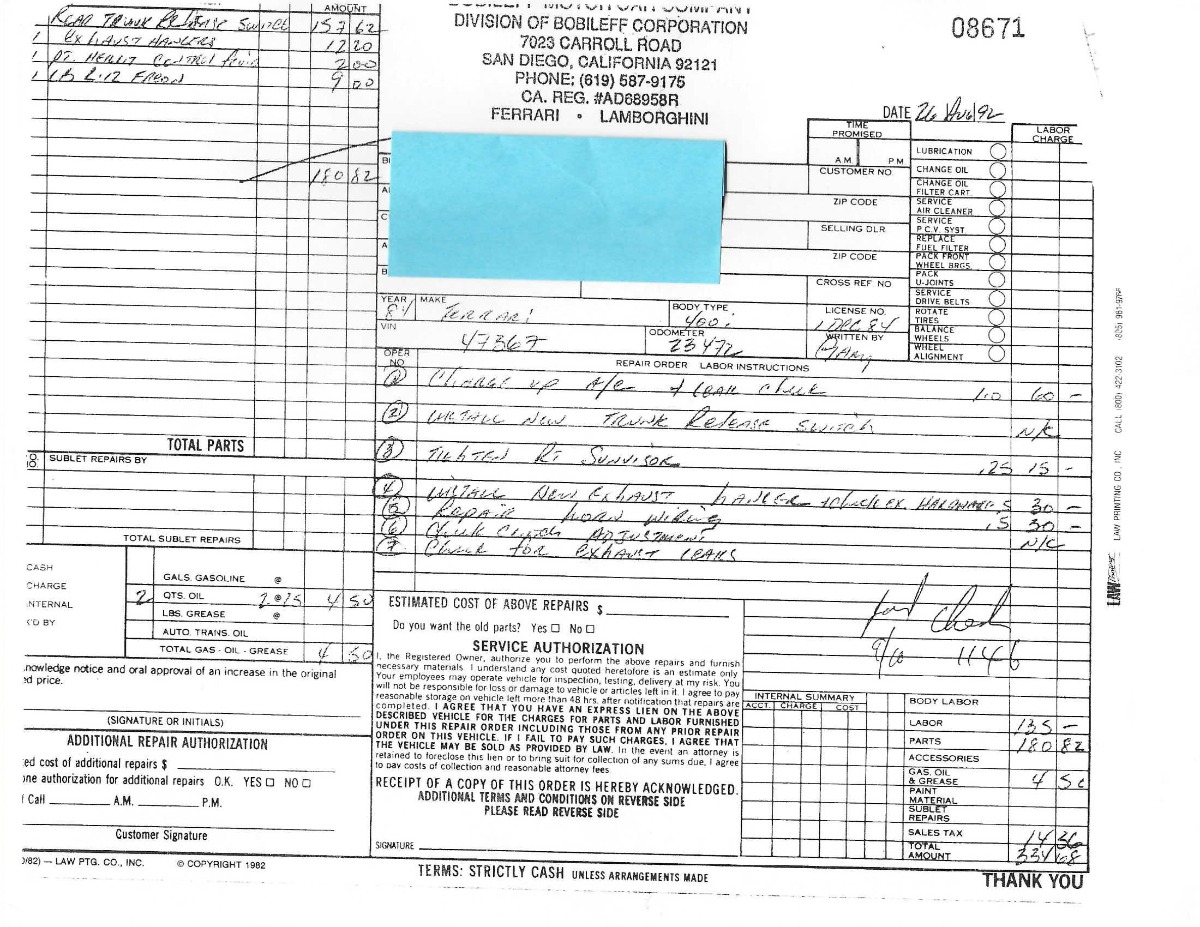 AMOUNT
REAR TRUNK RELEASE SWITCH 157 62
1 EXHAUST HANGERS 12 20
1 PT. HEAVY CONTROL fluid 2 00
1 LB R-12 FREON 9 00
180 82
TOTAL PARTS
SUBLET REPAIRS BY
TOTAL SUBLET REPAIRS
CASH
CHARGE
INTERNAL
K'D BY
GALS. GASOLINE @
2 QTS. OIL 2 @ 25 4 50
LBS. GREASE @
AUTO. TRANS. OIL
TOTAL GAS - OIL - GREASE 4 50
nowledge notice and oral approval of an increase in the original
ed price.
(SIGNATURE OR INITIALS)
ADDITIONAL REPAIR AUTHORIZATION
ed cost of additional repairs $
one authorization for additional repairs O.K. YES □ NO □
f Call A.M. P.M.
Customer Signature
0/82) — LAW PTG. CO., INC. © COPYRIGHT 1982
BOBILEFF MOTORCAR COMPANY
DIVISION OF BOBILEFF CORPORATION
7023 CARROLL ROAD
SAN DIEGO, CALIFORNIA 92121
PHONE; (619) 587-9175
CA. REG. #AD68958R
FERRARI • LAMBORGHINI
08671
DATE 26 AUG 92
TIME PROMISED
A M P M
CUSTOMER NO
ZIP CODE
SELLING DLR.
ZIP CODE
CROSS REF NO
LABOR CHARGE
LUBRICATION
CHANGE OIL
CHANGE OIL FILTER CART.
SERVICE AIR CLEANER
SERVICE P.C.V. SYST.
REPLACE FUEL FILTER
PACK FRONT WHEEL BRGS.
PACK U-JOINTS
SERVICE DRIVE BELTS
ROTATE TIRES
BALANCE WHEELS
WHEEL ALIGNMENT
YEAR 84 MAKE FERRARI
BODY TYPE 400i
LICENSE NO. 1 DRG 84
VIN 47367
ODOMETER 23472
WRITTEN BY
OPER NO
REPAIR ORDER LABOR INSTRUCTIONS
① CHARGE UP A/C & LEAK CHECK 1.0 60 –
② INSTALL NEW TRUNK RELEASE SWITCH N/C
③ TIGHTEN RT SUNVISOR .25 15 –
④ INSTALL NEW EXHAUST HANGER & CHECK EX. HARDWARE .5 30 –
⑤ REPAIR HORN WIRING .5 30 –
⑥ CHECK CLUTCH ADJUSTMENT N/C
⑦ CHECK FOR EXHAUST LEAKS
ESTIMATED COST OF ABOVE REPAIRS $
Do you want the old parts? Yes □ No □
SERVICE AUTHORIZATION
I, the Registered Owner, authorize you to perform the above repairs and furnish
necessary materials. I understand any cost quoted heretofore is an estimate only
Your employees may operate vehicle for inspection, testing, delivery at my risk. You
will not be responsible for loss or damage to vehicle or articles left in it. I agree to pay
reasonable storage on vehicle left more than 48 hrs. after notification that repairs are
completed. I AGREE THAT YOU HAVE AN EXPRESS LIEN ON THE ABOVE
DESCRIBED VEHICLE FOR THE CHARGES FOR PARTS AND LABOR FURNISHED
UNDER THIS REPAIR ORDER INCLUDING THOSE FROM ANY PRIOR REPAIR
ORDER ON THIS VEHICLE. IF I FAIL TO PAY SUCH CHARGES, I AGREE THAT
THE VEHICLE MAY BE SOLD AS PROVIDED BY LAW. In the event an attorney is
retained to foreclose this lien or to bring suit for collection of any sums due, I agree
to pay costs of collection and reasonable attorney fees
RECEIPT OF A COPY OF THIS ORDER IS HEREBY ACKNOWLEDGED.
ADDITIONAL TERMS AND CONDITIONS ON REVERSE SIDE
PLEASE READ REVERSE SIDE
SIGNATURE
TERMS: STRICTLY CASH UNLESS ARRANGEMENTS MADE
paid Check
9/10 1146
INTERNAL SUMMARY
ACCT. CHARGE COST
BODY LABOR
LABOR 135 –
PARTS 180 82
ACCESSORIES
GAS, OIL & GREASE 4 50
PAINT MATERIAL
SUBLET REPAIRS
SALES TAX 14 36
TOTAL AMOUNT 334 68
THANK YOU
LAW PRINTING CO., INC CALL (800) 422-3102 (805) 961-9756